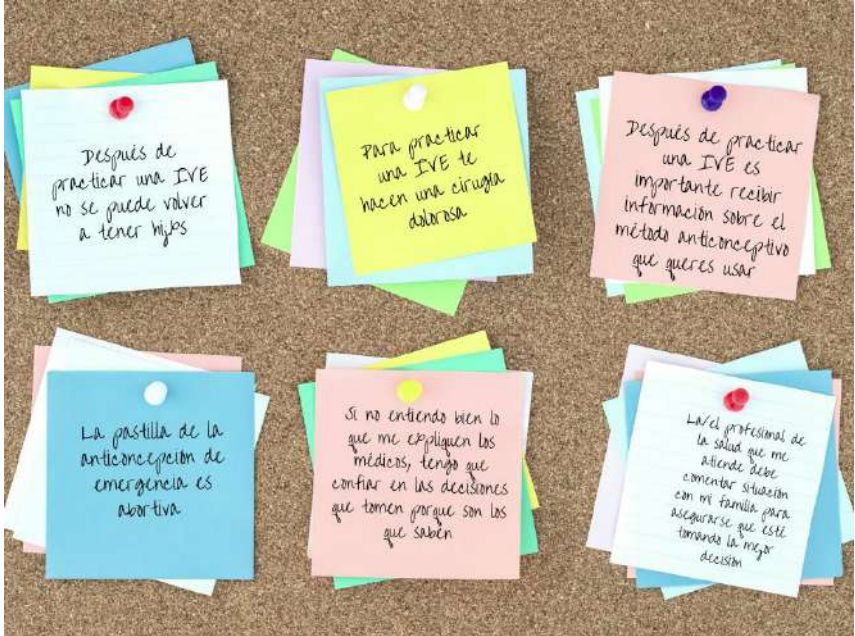 Después de
practicar una IVE
no se puede volver
a tener hijos
Para practicar
una IVE te
hacen una cirugía
dolorosa
Después de practicar
una IVE es
importante recibir
información sobre el
método anticonceptivo
que queres usar
La pastilla de la
anticoncepción de
emergencia es
abortiva
Si no entiendo bien lo
que me expliquen los
médicos, tengo que
confiar en las decisiones
que tomen porque son los
que saben
La/el profesional de
la salud que me
atiende debe
comentar situación
con mi familia para
asegurarse que esté
tomando la mejor
decisión